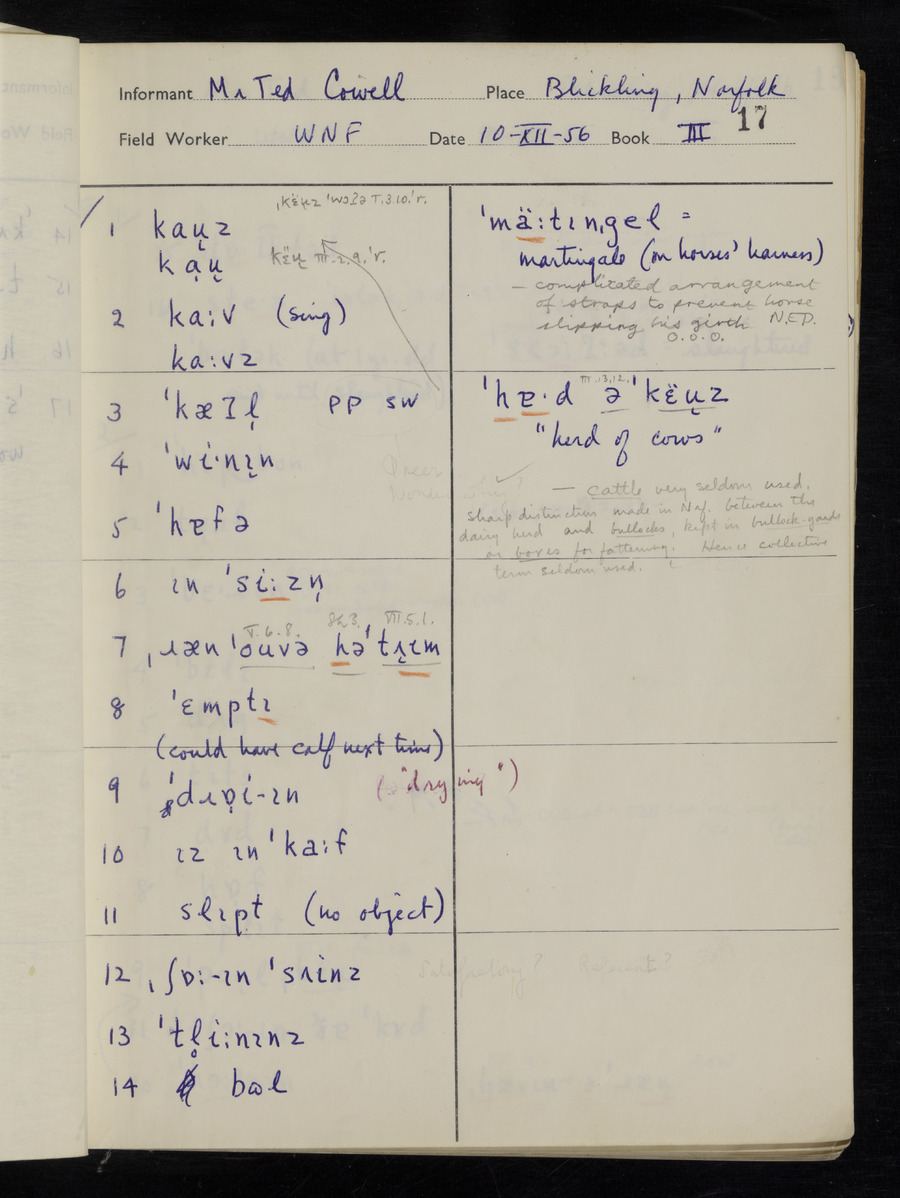 Informant Mr Ted Cowell Place Blickling, Norfolk
Field Worker WNF Date 10-XII-56 Book III 17
ˌkëu̜z ˈwɔʔə T.3.10.ˈr.
1 kau̜z
ka̜u̜ këu̜ III.2.9.ˈr.
2 ka:v (sing)
ka:vz
3 ˈkæʔl̩ PP SW
4 ˈwi·nɪn
5 ˈhɐfə
6 ɪn ˈsi:zn̩
V.6.8. VII.5.1.
7 ˌɹæn ˈouvə həˈtɹɪm
8 ˈɛmptɪ
(could have calf next time)
9 ˈdɹɒ̣i-ɪn (="drying")
10 ɪz ɪn ˈka:f
11 slɪpt (no object)
12 ˌʃɒ:-ɪn ˈsʌinz
13 ˈtl̥i:nɪnz
14 bʊl
ˈmä:tɪnˌgel =
martingale (on horses' harness)
— complicated arrangement
of straps to prevent horse
slipping his girth N.E.D.
O.O.O.
III.13.12.
ˈhɐ·d ə ˈkëu̜z
"herd of cows"
— cattle very seldom used.
Sharp distinction made in Nf. between the
dairy herd and bullocks, kept in bullock-yards
or boxes for fattening. Hence collective
term seldom used.
Satisfactory? Relevant?